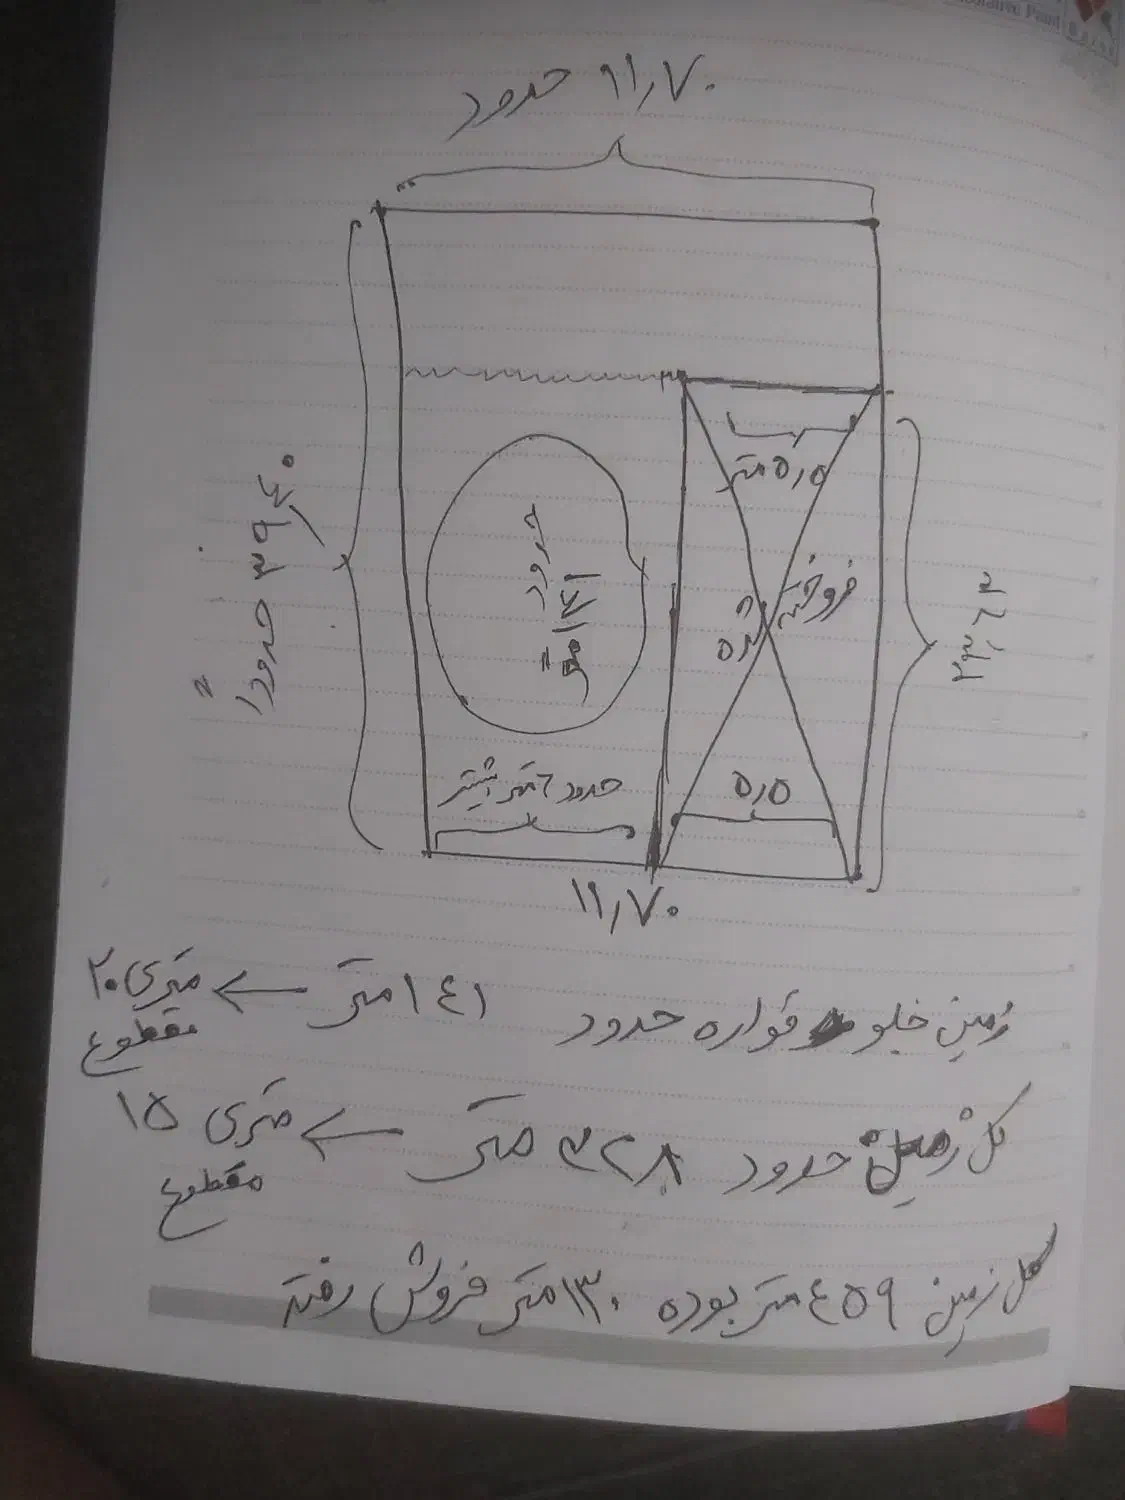 حدود ۱۱٫۷۰
۵٫۵ متر
حدوداً ۳۹٫۴۰
حدود
۱۴۱ متر
فروخته شده
۲۳٫۶۳
حدود ۶ متر بیشتر
۵٫۵
۱۱٫۷۰
زمین جلو قواره حدود ۱۴۱ متر ← متری ۲۰
مقطوع
کل زمین حدود ۳۲۸ متر ← متری ۱۵
مقطوع
کل زمین ۴۵۹ متر بوده ۱۳۰ متر فروش رفته